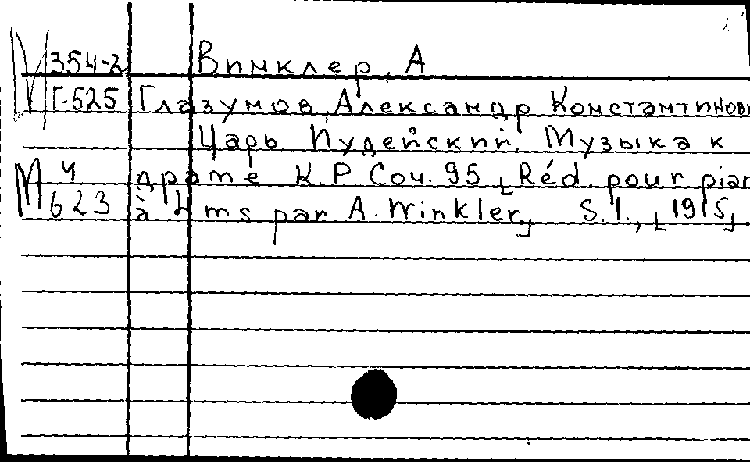 М 354-2 Винклер, А
Г-525 Глазунов, Александр Константинови
Царь Иудейский. Музыка к
М 4 драме К.Р. Соч. 95 [Réd. pour pian
623 à 4 ms par A. Winkler] S. l., [1915]